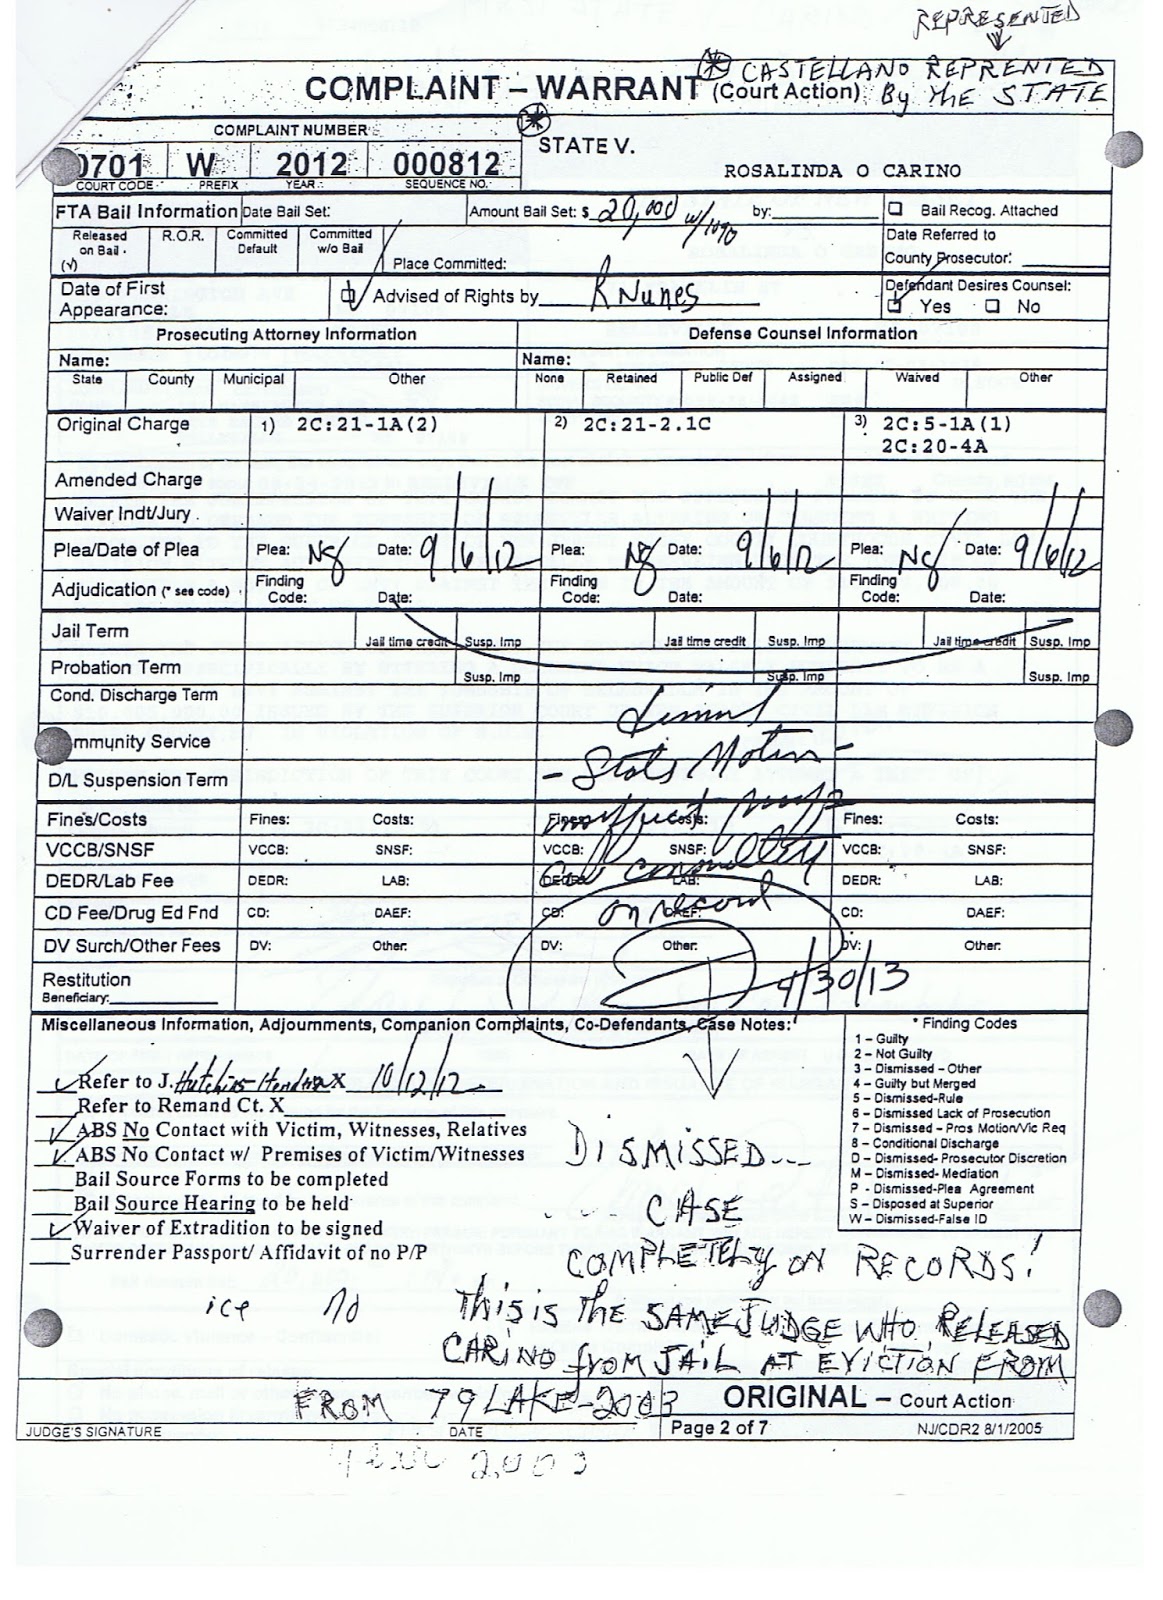 REPRESENTED
COMPLAINT – WARRANT (Court Action)
* CASTELLANO REPRENTED
By the STATE
COMPLAINT NUMBER
0701 W 2012 000812
COURT CODE PREFIX YEAR SEQUENCE NO.
* STATE V.
ROSALINDA O CARINO
FTA Bail Information Date Bail Set: Amount Bail Set: $ 20,000 w/10% by: Bail Recog. Attached
Released on Bail (√) R.O.R. Committed Default Committed w/o Bail Place Committed:
Date Referred to
County Prosecutor:
Date of First
Appearance:
Advised of Rights by K Nunes
Defendant Desires Counsel:
Yes No
Prosecuting Attorney Information Defense Counsel Information
Name: Name:
State County Municipal Other None Retained Public Def Assigned Waived Other
Original Charge 1) 2C:21-1A(2) 2) 2C:21-2.1C 3) 2C:5-1A(1)
2C:20-4A
Amended Charge
Waiver Indt/Jury
Plea/Date of Plea Plea: NG Date: 9/6/12 Plea: NG Date: 9/6/12 Plea: NG 9/6/12
Adjudication (* see code) Finding Code: Date: Finding Code: Date: Finding Code: Date:
Jail Term Jail time credit Susp. Imp Jail time credit Susp. Imp Jail time credit Susp. Imp
Probation Term Susp. Imp Susp. Imp Susp. Imp
Cond. Discharge Term
mmunity Service
- State's Motion -
D/L Suspension Term
Fines/Costs Fines: Costs: Fines: Costs: Fines: Costs:
VCCB/SNSF VCCB: SNSF: VCCB: SNSF: VCCB: SNSF:
DEDR/Lab Fee DEDR: LAB: DEDR: LAB: DEDR: LAB:
CD Fee/Drug Ed Fnd CD: DAEF: CD: DAEF: CD: DAEF:
on record
DV Surch/Other Fees DV: Other: DV: Other: DV: Other:
Restitution
Beneficiary:
4/30/13
Miscellaneous Information, Adjournments, Companion Complaints, Co-Defendants, Case Notes:
Refer to J. Hutchins-Hendrix 10/12/12
Refer to Remand Ct. X
ABS No Contact with Victim, Witnesses, Relatives
ABS No Contact w/ Premises of Victim/Witnesses
Bail Source Forms to be completed
Bail Source Hearing to be held
Waiver of Extradition to be signed
Surrender Passport/ Affidavit of no P/P
ice no
* Finding Codes
1 - Guilty
2 - Not Guilty
3 - Dismissed - Other
4 - Guilty but Merged
5 - Dismissed-Rule
6 - Dismissed Lack of Prosecution
7 - Dismissed - Pros Motion/Vic Req
8 - Conditional Discharge
D - Dismissed- Prosecutor Discretion
M - Dismissed- Mediation
P - Dismissed-Plea Agreement
S - Disposed at Superior
W - Dismissed-False ID
DISMISSED...
CASE
COMPLETELY ON RECORDS!
This is the SAME JUDGE WHO RELEASED
CARINO from JAIL AT EVICTION FROM
FROM 79 LAKE-2003
JUDGE'S SIGNATURE DATE
ORIGINAL – Court Action
Page 2 of 7 NJ/CDR2 8/1/2005
2003